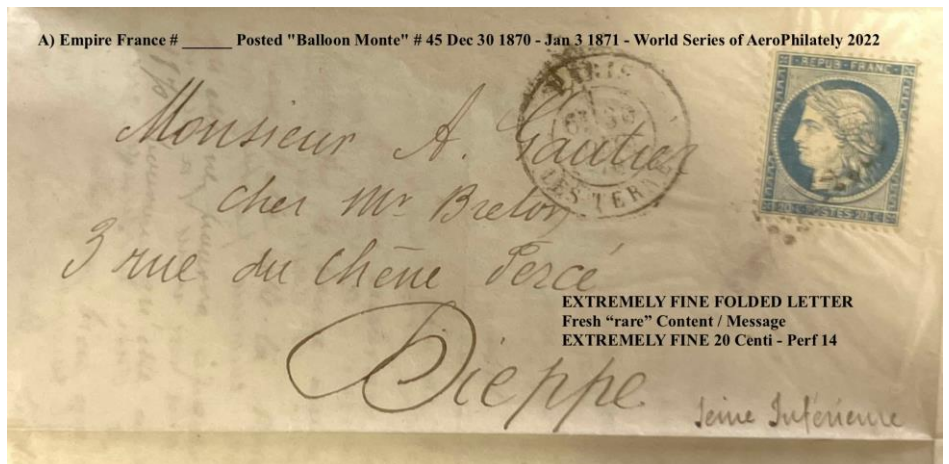 A) Empire France # ______ Posted "Balloon Monte" # 45 Dec 30 1870 - Jan 3 1871 - World Series of AeroPhilately 2022
PARIS
LES TERNES
REPUB. FRANC.
20 C. POSTES 20 C.
Monsieur A. Gautier
chez Mr Breton
3 rue du Chêne Percé
EXTREMELY FINE FOLDED LETTER
Fresh “rare” Content / Message
EXTREMELY FINE 20 Centi - Perf 14
Dieppe
Seine Inférieure